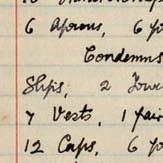 6 Aprons, 6 p
Condemns
Slips, 2 Tow
7 Vests, 1 pair
12 Caps, 6 p